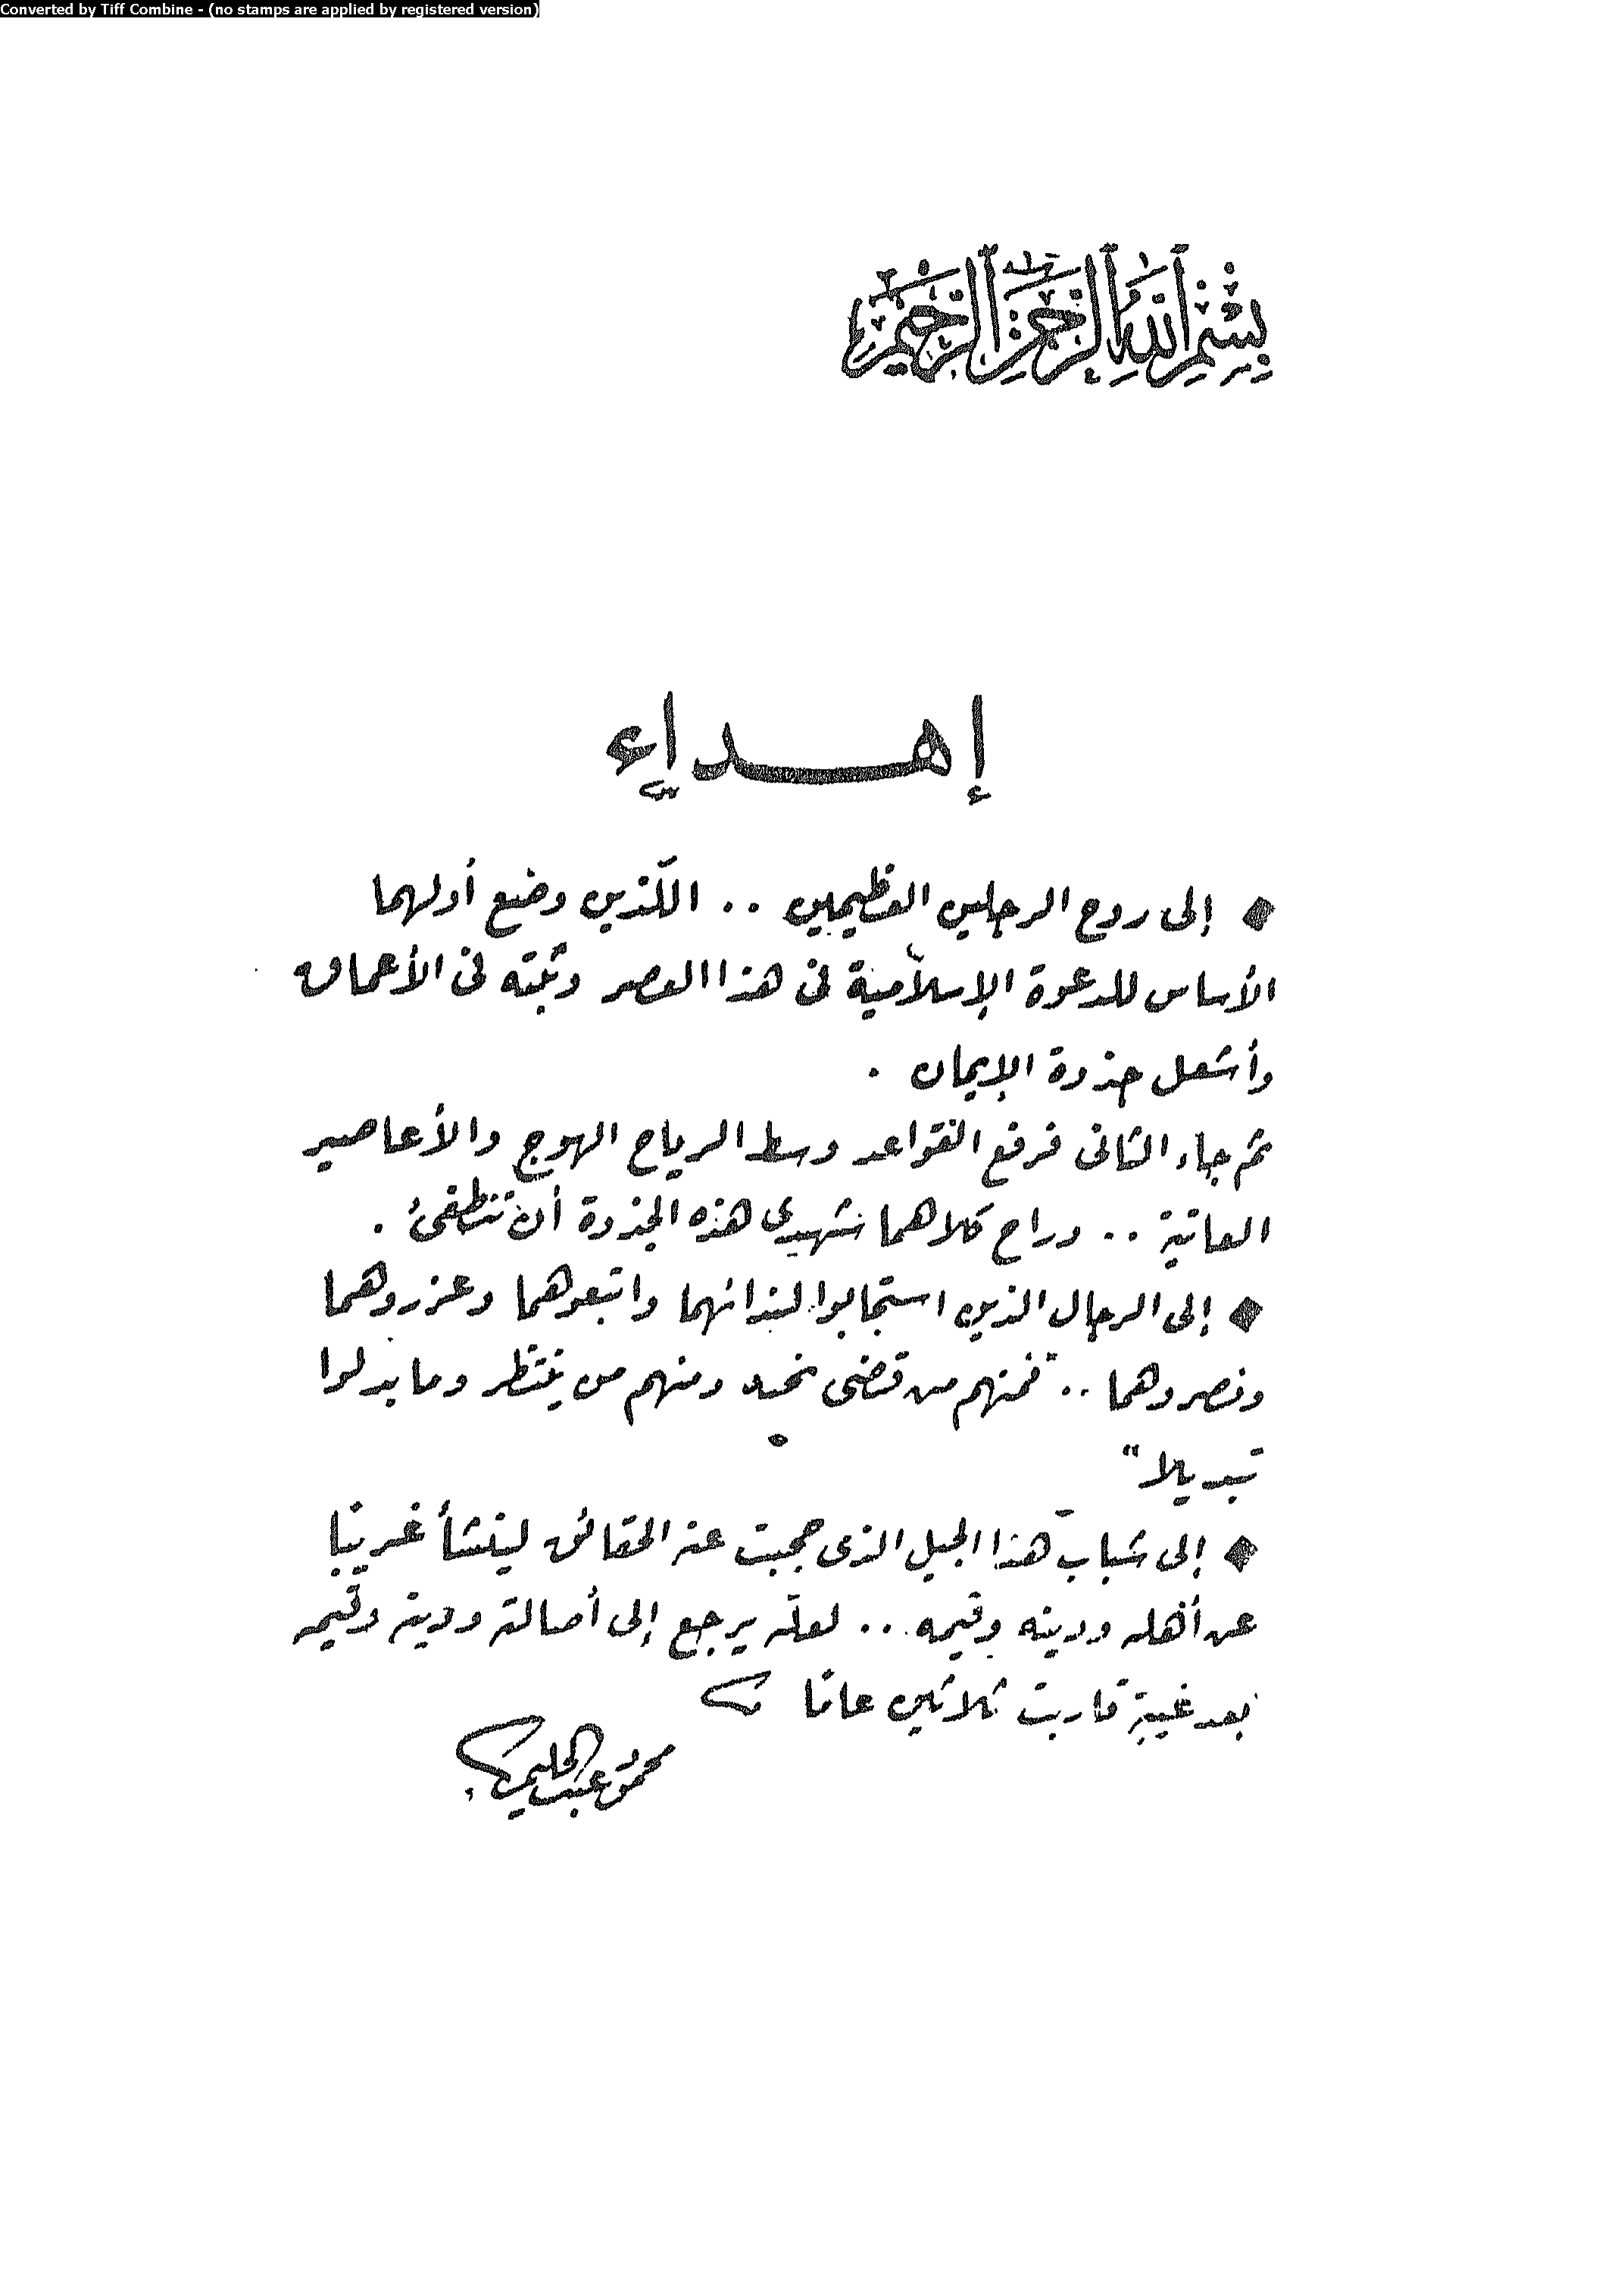 Converted by Tiff Combine - (no stamps are applied by registered version)
بسم الله الرحمن الرحيم
إهداء
◆ إلى روح الرجلين العظيمين .. اللّذين وضع أولهما
الأساس للدعوة الإسلامية فى هذا العصر وثبّته فى الأعماق
وأشعل جذوة الإيمان .
ثم جاء الثانى فرفع القواعد وسط الرياح الهوج والأعاصير
العاتية .. وراح كلاهما شهيدى هذه الجذوة أن تنطفئ .
◆ إلى الرجال الذين استجابوا لندائهما واتبعوهما وعزروهما
ونصروهما .. "فمنهم من قضى نحبه ومنهم من ينتظر وما بدلوا
تبديلا"
◆ إلى شباب هذا الجيل الذى حجبت عنه الحقائق لينشأ غريبًا
عن أهله ودينه وقيمه .. لعلّه يرجع إلى أصالته ودينه وقيمه
بعد غيبة قاربت ثلاثين عامًا
محمود عبد الحليم